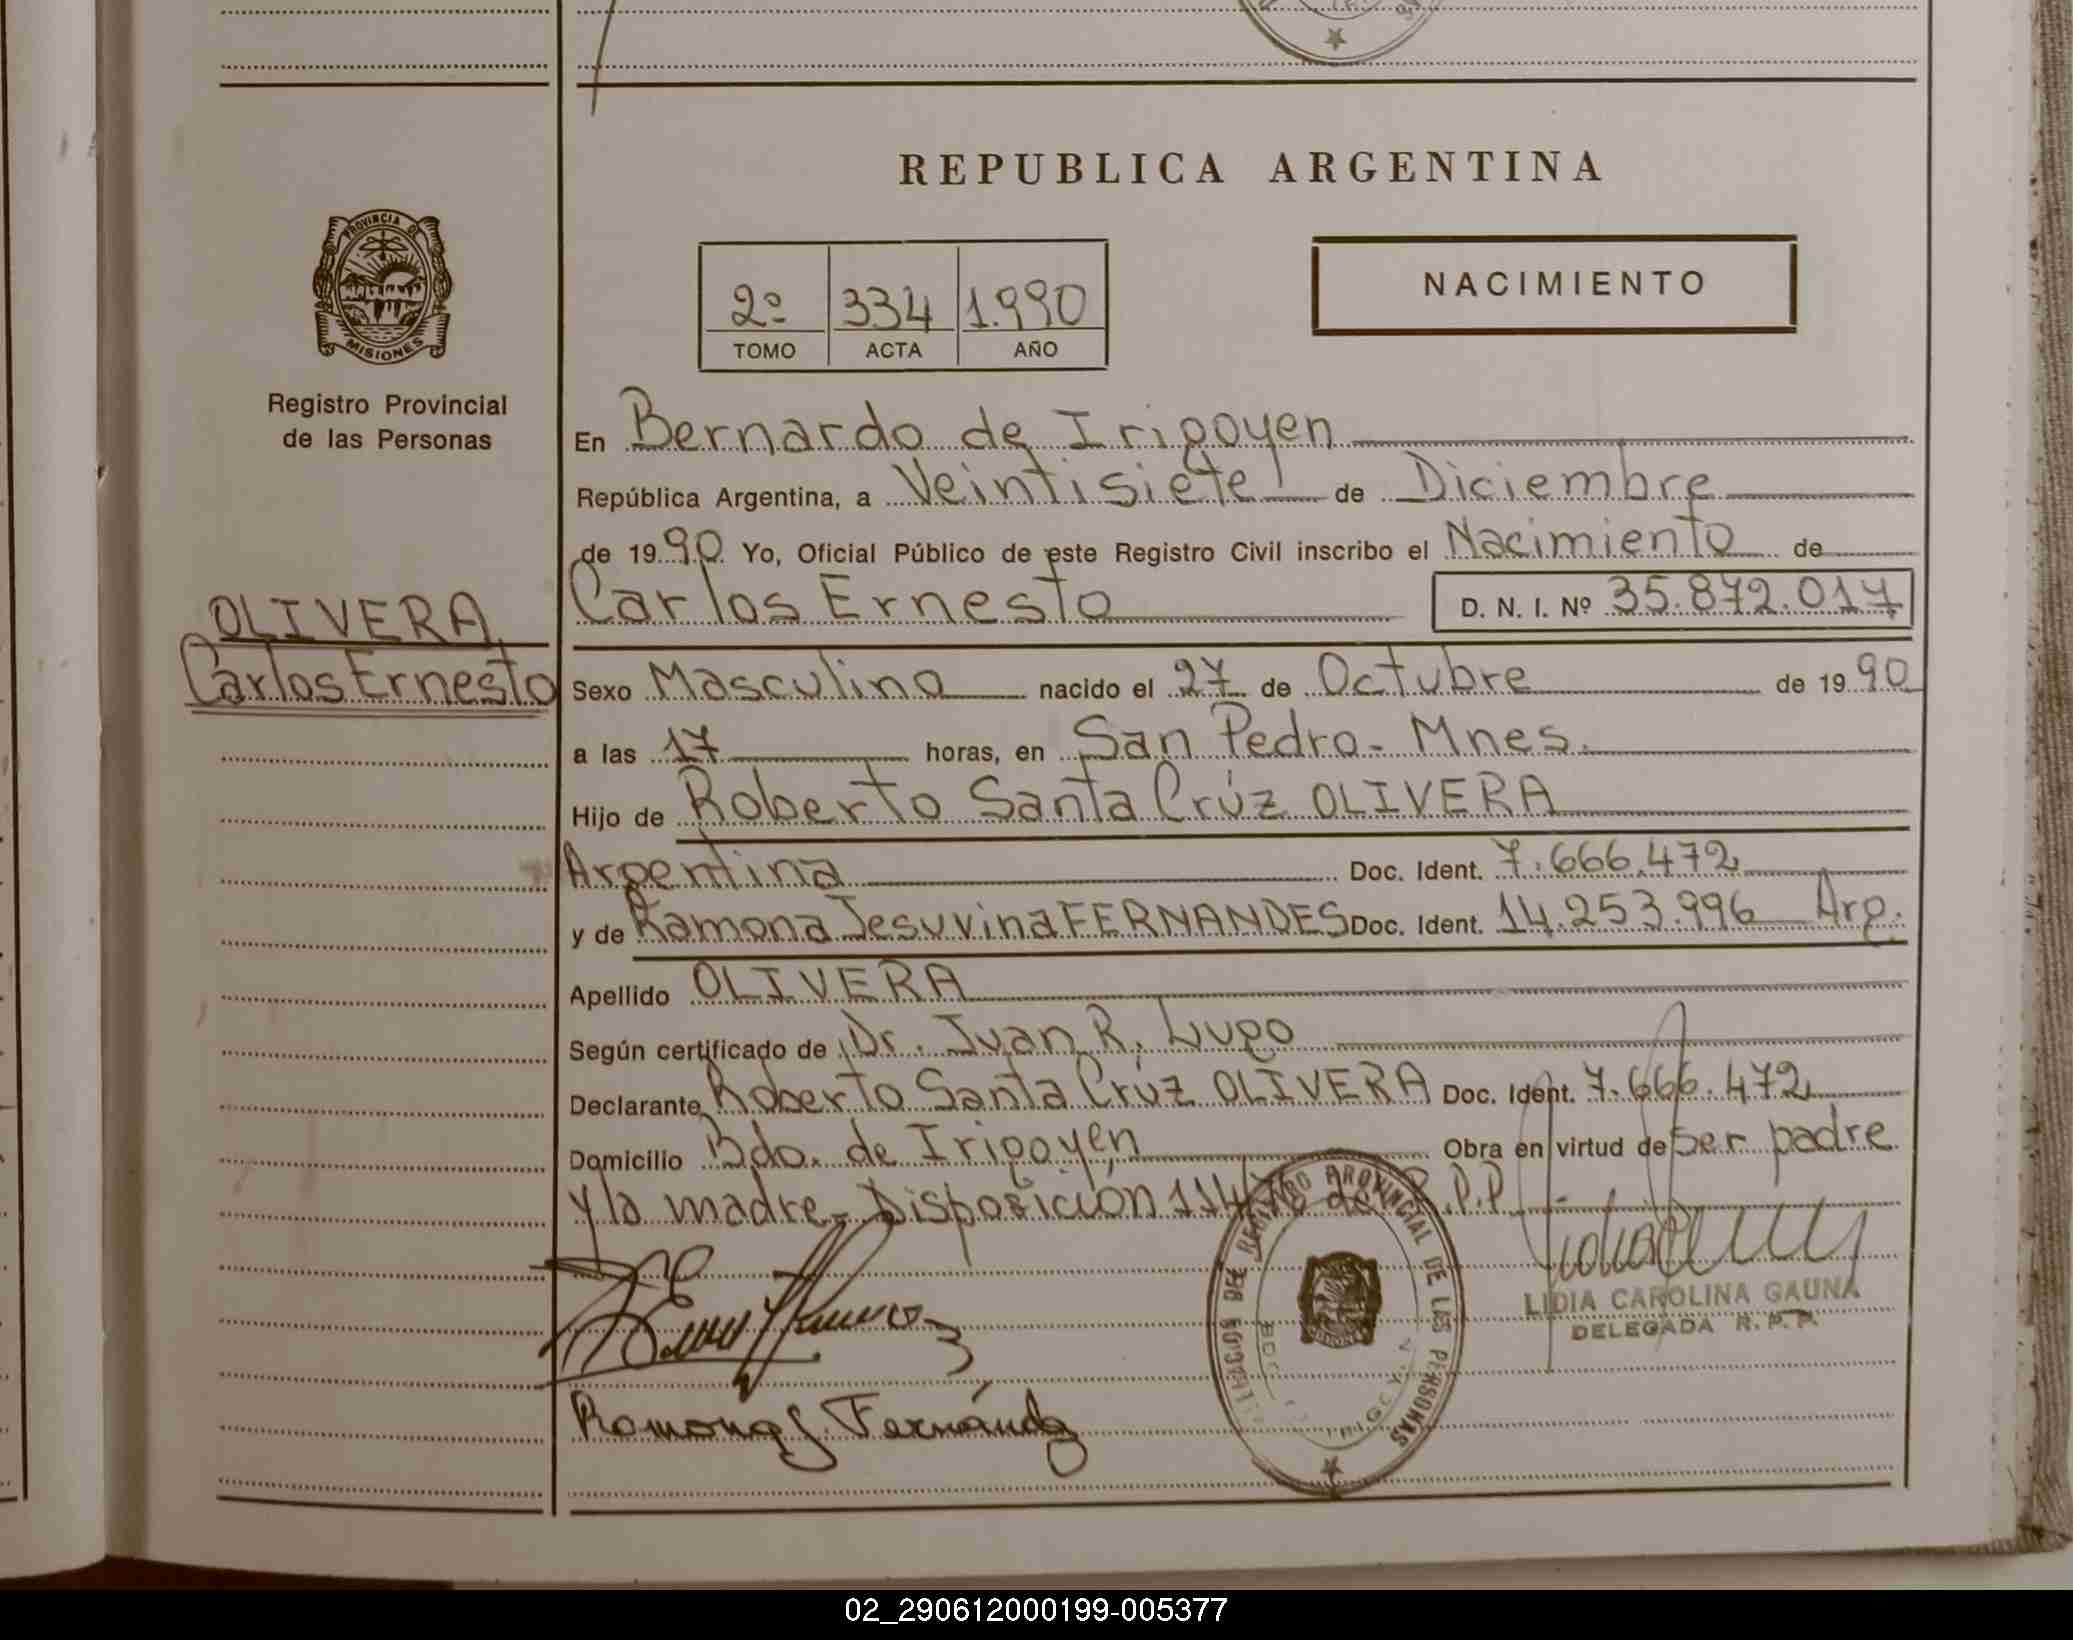 REPUBLICA ARGENTINA
PROVINCIA DE
MISIONES
Registro Provincial
de las Personas
2º 334 1.990
TOMO ACTA AÑO
NACIMIENTO
En Bernardo de Irigoyen
República Argentina, a Veintisiete de Diciembre
de 1990 Yo, Oficial Público de este Registro Civil inscribo el Nacimiento de
OLIVERA
Carlos Ernesto
Carlos Ernesto D. N. I. Nº 35.872.017
Sexo Masculino nacido el 27 de Octubre de 1990
a las 17 horas, en San Pedro- Mnes.
Hijo de Roberto Santa Crúz OLIVERA
Argentina Doc. Ident. 7.666.472
y de Ramona Jesuvina FERNANDES Doc. Ident. 14.253.996 Arg.
Apellido OLIVERA
Según certificado de Dr. Juan R. Lugo
Declarante Roberto Santa Crúz OLIVERA Doc. Ident. 7.666.472
Domicilio Bdo. de Irigoyen Obra en virtud de Ser padre
y la madre- Disposición 114/76 de R.P.P.
REGISTRO PROVINCIAL DE LAS PERSONAS
LIDIA CAROLINA GAUNA
DELEGADA R. P. P.
Ramona J. Fernández
02_290612000199-005377